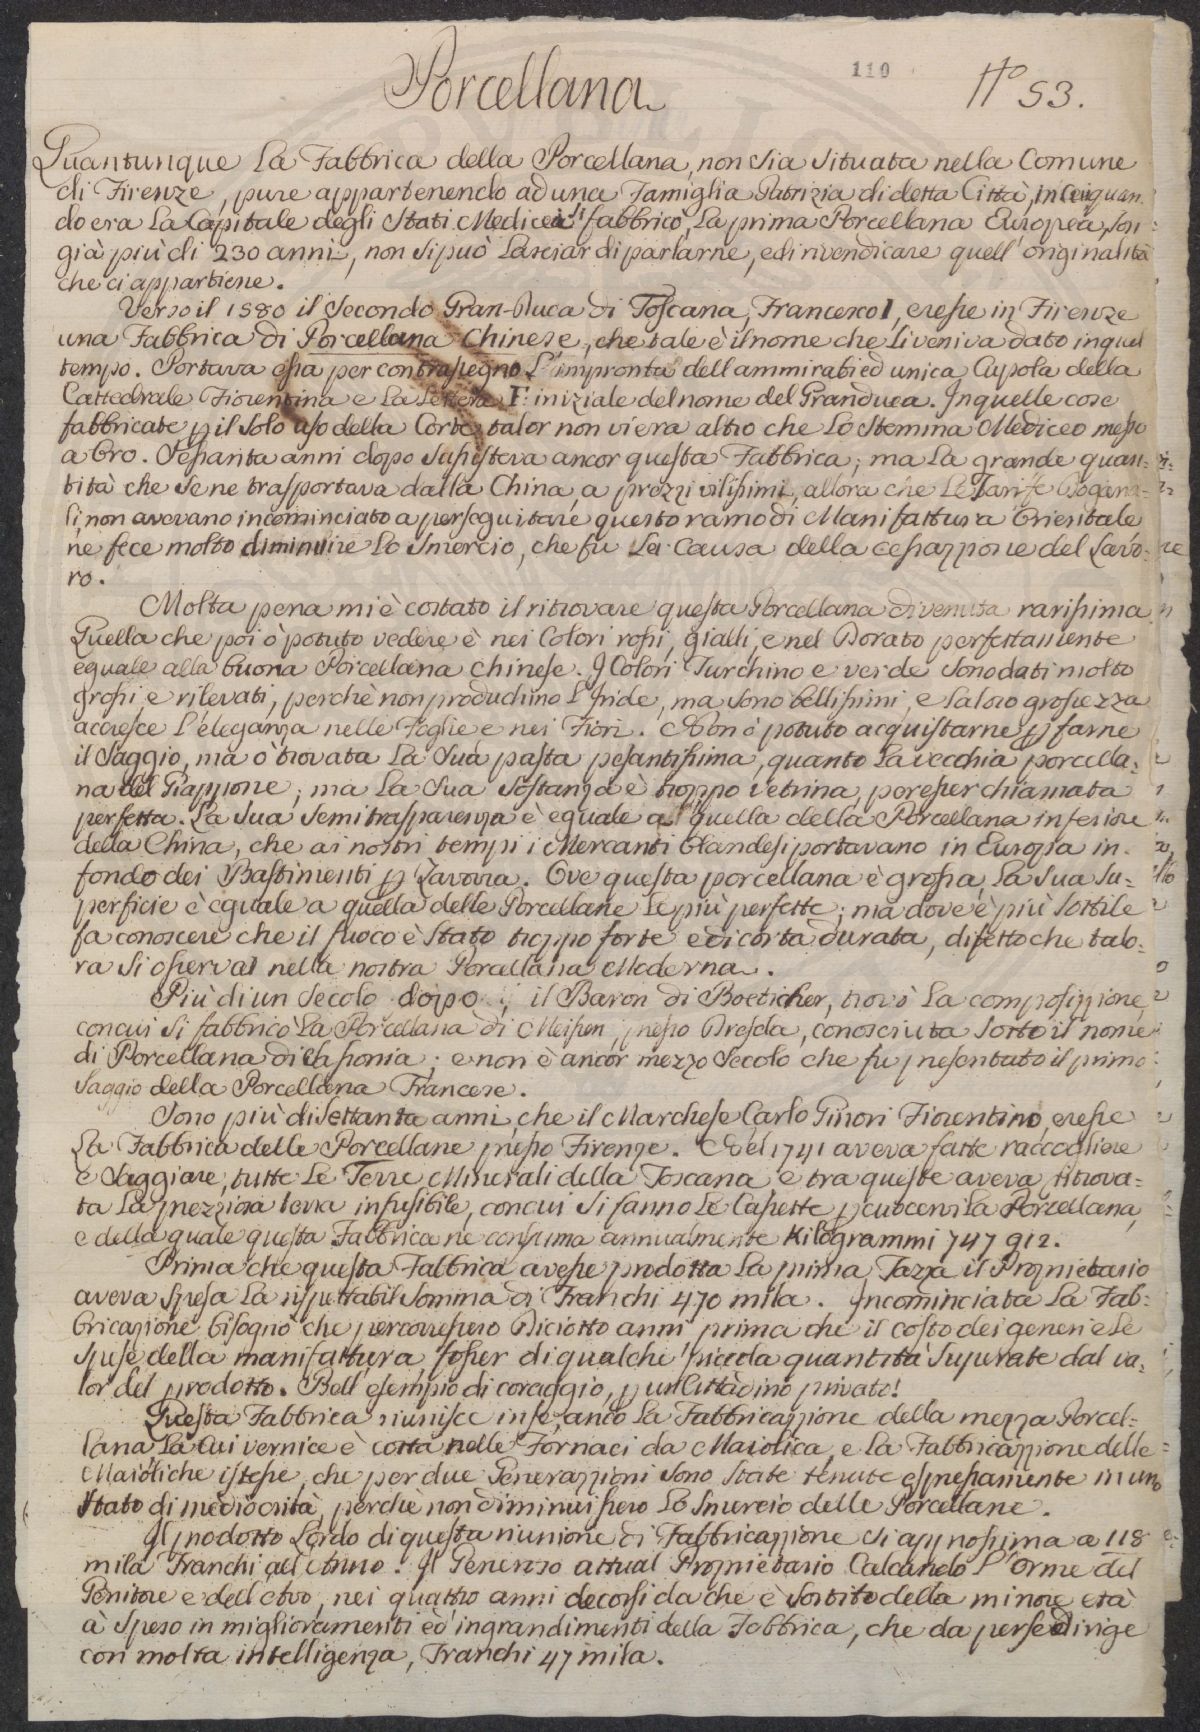 110
Porcellana
N.o 53.
Quantunque La Fabbrica della Porcellana, non sia situata nella Comune
di Firenze, pure appartenendo ad una Famiglia Patrizia di detta Città, in cui quan-
do era La Capitale degli Stati Medicei si fabbricò, La prima Porcellana Europea, son
già più di 230 anni, non si può Lasciar di parlarne, e di rivendicare quell' originalità
che ci appartiene.
Verso il 1580 il Secondo Gran-Duca di Toscana, Francesco I, eresse in Firenze
una Fabbrica di Porcellana Chinese, che tale è il nome che Li veniva dato in quel
tempo. Portava essa per contrasegno L'impronta dell ammirabil ed unica Cupola della
Cattedrale Fiorentina e La Lettera F. iniziale del nome del Granduca. In quelle cose
fabbricate p il Solo uso della Corte, talor non vi era altro che Lo Stemma Mediceo messo
a Oro. Sessanta anni dopo Sussisteva ancor questa Fabbrica; ma La grande quan-
tità che Se ne trasportava dalla China, a prezzi vilissimi, allora che Le Tarife Dogana-
li, non avevano incominciato a perseguitare questo ramo di Manifattura Orientale
ne fece molto diminuire Lo Smercio, che fu La Causa della cessazzione del Lavo-
ro.
Molta pena mi è costato il ritrovare questa Porcellana divenuta rarissima
Quella che poi ò potuto vedere è nei Colori rossi, gialli, e nel Dorato perfettamente
eguale alla buona Porcellana Chinese. I Colori Turchino e verde Sono dati molto
grossi e rilevati, perchè non produchino L'Iride, ma Sono bellissimi, e La loro grossezza
accresce L'eleganza nelle Foglie e nei Fiori. Non ò potuto acquistarne p farne
il Saggio, ma ò trovata La Sua pasta pesantissima, quanto La vecchia porcella-
na del Giappone; ma La Sua Sostanza è troppo vetrina, per esser chiamata
perfetta. La Sua Semitrasparenza è eguale a quella della Porcellana inferiore
della China, che ai nostri tempi i Mercanti Olandesi portavano in Europa in
fondo dei Bastimenti p Zavorra. Ove questa porcellana è grossa, La Sua Su-
perficie è eguale a quella delle Porcellane Le più perfette; ma dove è più Sottile
fa conoscere che il fuoco è Stato troppo forte e di corta durata, difetto che talo-
ra Si osserva nella nostra Porcellana Moderna.
Più di un Secolo dopo il Baron di Boeticher, trovò La composizzione,
con cui Si fabbricò La Porcellana di Meissen, presso Dresda, conosciuta Sotto il nome
di Porcellana di Sassonia; e non è ancor mezzo Secolo che fu presentato il primo
Saggio della Porcellana Francese.
Sono più di Settanta anni, che il Marchese Carlo Ginori Fiorentino, eresse
La Fabbrica delle Porcellane presso Firenze. Nel 1741 aveva fatte raccogliere
e Saggiare, tutte Le Terre Minerali della Toscana e tra queste aveva ritrova-
ta La preziosa terra infusibile, con cui Si fanno Le Casette p cuocervi La Porcellana,
e della quale questa Fabbrica ne consuma annualmente Kilogrammi 747 912.
Prima che questa Fabbrica avesse prodotta La prima Tazza il Proprietario
aveva Spesa La rispettabil Somma di Franchi 470 mila. Incominciata La Fab-
bricazione, bisognò che percorressero Diciotto anni prima che il costo dei generi e Le
Spese della manifattura fosser di qualche piccola quantità Superate dal va-
lor del prodotto. Bell' esempio di coraggio, p un Cittadino privato!
Questa Fabbrica riunisce in se, anco La Fabbricazzione della mezza Porcel-
lana La Cui vernice è cotta nelle Fornaci da Maiolica, e La Fabbricazzione delle
Maioliche istesse, che per due Generazzioni Sono State tenute espressamente in uno
Stato di mediocrità, perchè non diminuissero Lo Smercio delle Porcellane.
Il prodotto Lordo di questa riunione di Fabbricazzione Si approssima a 118
mila Franchi all' Anno. Il Generoso attual Proprietario Calcando L'orme del
Genitore e dell' Avo, nei quattro anni decorsi da che è Sortito della minore età
à Speso in miglioramenti ed ingrandimenti della Fabbrica, che da per se dirige
con molta intelligenza, Franchi 47 mila.